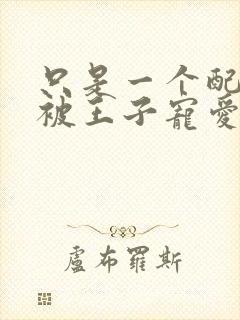 只是一个配
被王子寵愛
盧布羅斯